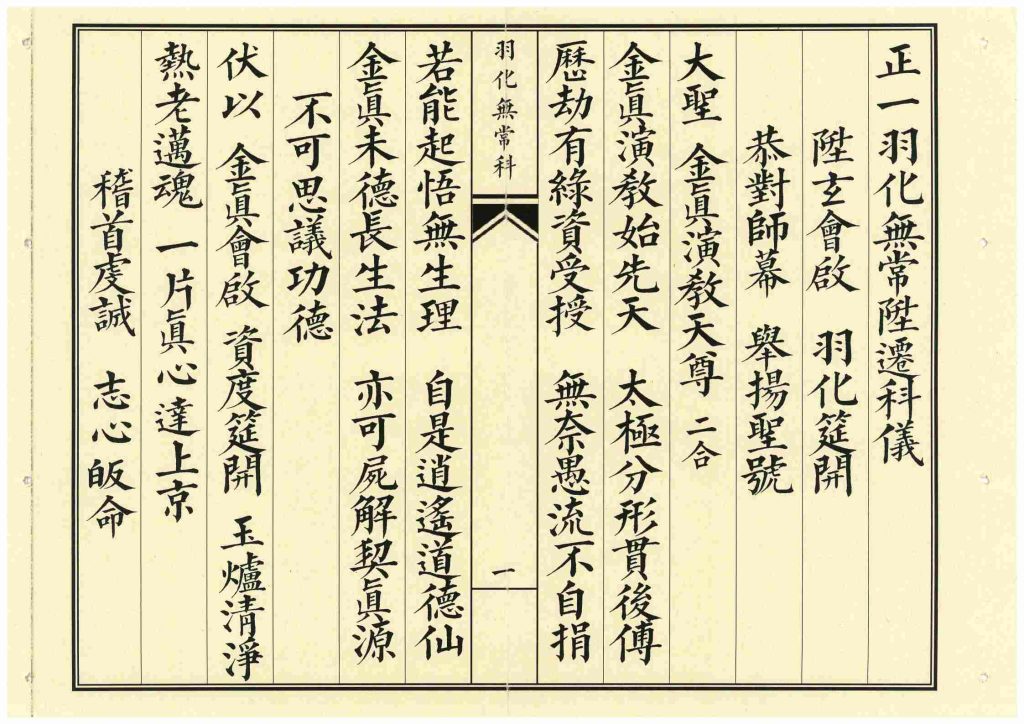 正一羽化無常陞遷科儀
陞玄會啟　羽化筵開
恭對師幕　舉揚聖號
大聖　金眞演教天尊　二合
金眞演教始先天　太極分形貫後傳
歷劫有緣資受授　無奈愚流不自捐
羽化無常科　一
若能起悟無生理　自是逍遙道德仙
金眞未德長生法　亦可屍解契眞源
不可思議功德
伏以　金眞會啟　資度筵開　玉爐清淨
熱老邁魂　一片眞心達上京
稽首虔誠　志心皈命